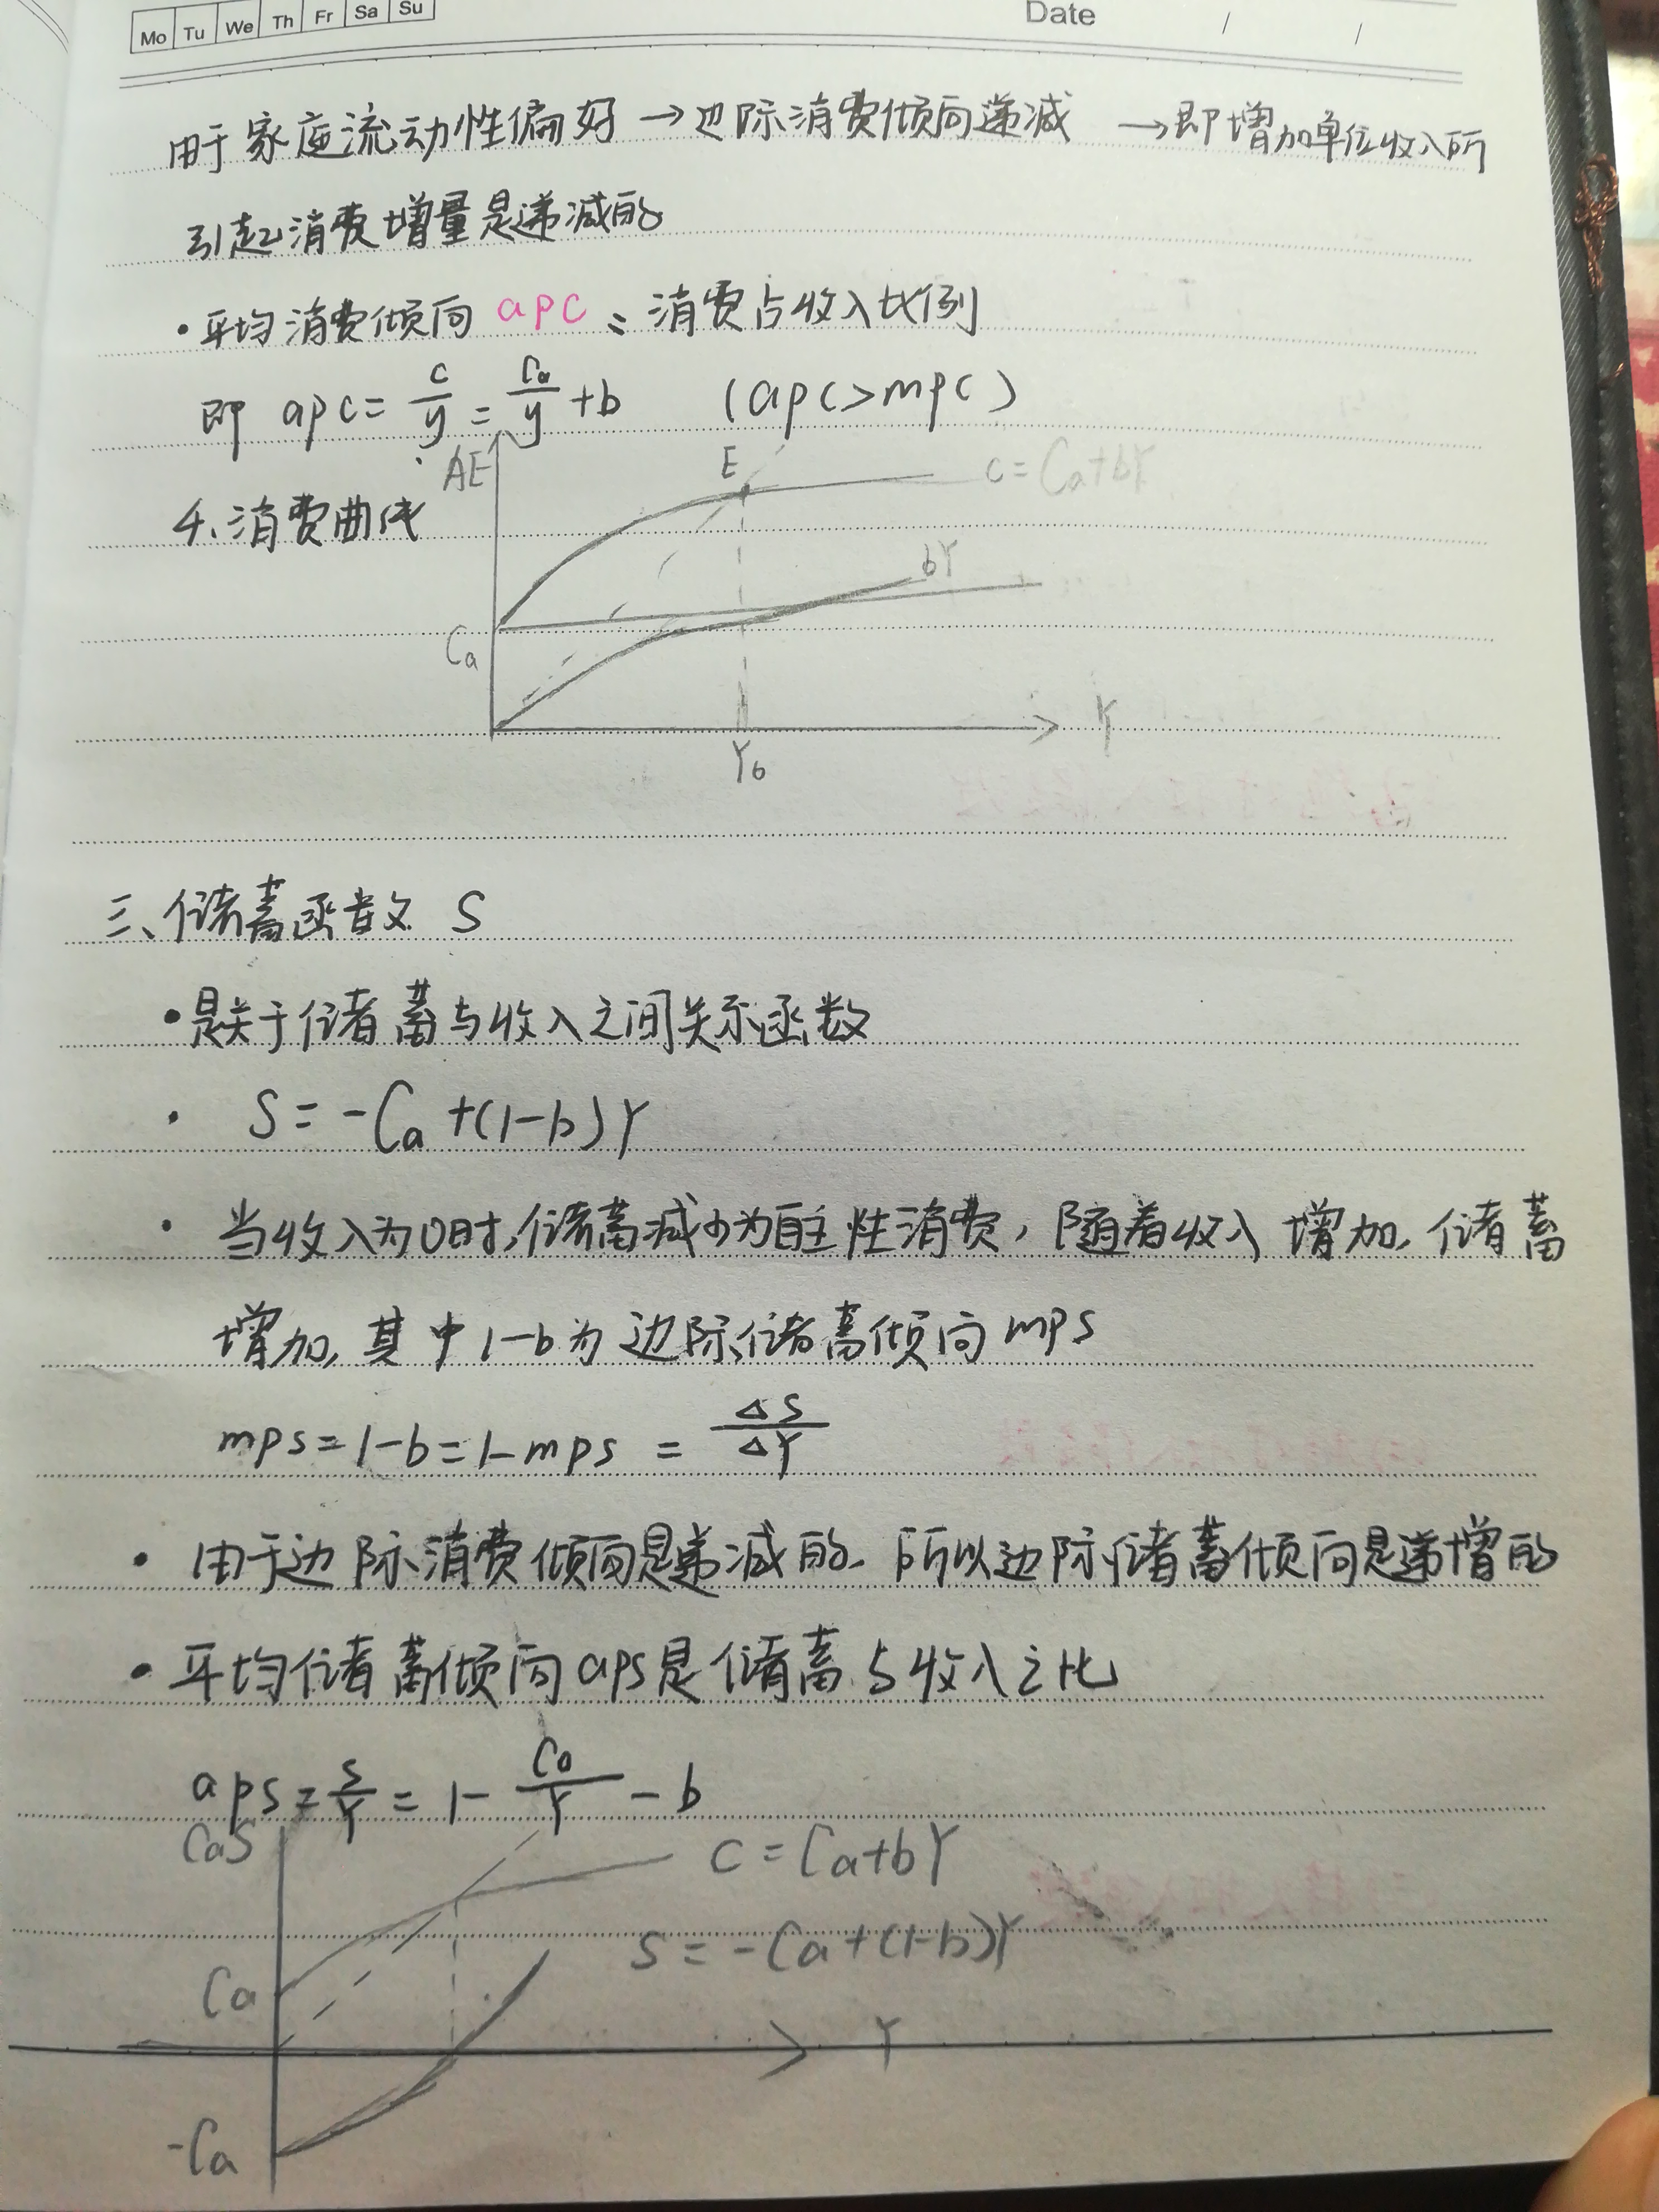 Mo Tu We Th Fr Sa Su Date / /
用于家庭流动性偏好→边际消费倾向递减 →即增加单位收入所
引起消费增量是递减的
·平均消费倾向 apc = 消费占收入比例
即 apc = c/y = Ca/y + b (apc>mpc)
AE E c = Ca+bY
4.消费曲线
bY
Ca
Y
Y0
三、储蓄函数 S
·是关于储蓄与收入之间关系函数
· S = -Ca +(1-b)Y
· 当收入为0时,储蓄减少为自主性消费,随着收入增加,储蓄
增加,其中1-b为边际储蓄倾向mps
mps = 1-b = 1-mps = ΔS/ΔY
· 由于边际消费倾向是递减的,所以边际储蓄倾向是递增的
· 平均储蓄倾向aps是储蓄与收入之比
aps = S/Y = 1 - Ca/Y - b
CaS
C = Ca+bY
S = -Ca+(1-b)Y
Ca
Y
-Ca